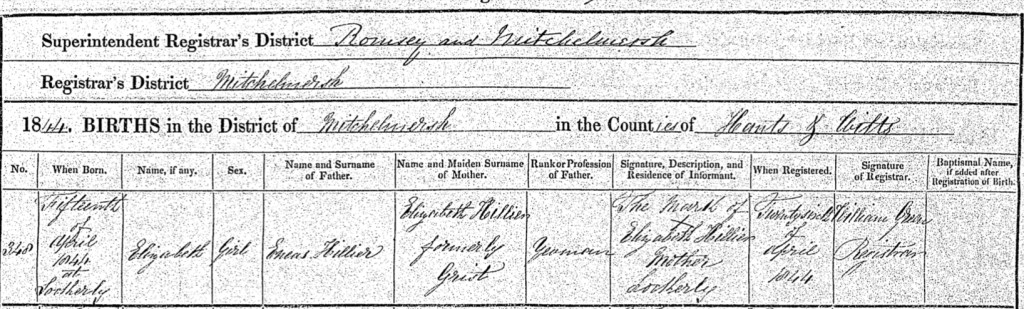 Superintendent Registrar's District Romsey and Mitchelmersh
Registrar's District Mitchelmersh
1844. BIRTHS in the District of Mitchelmersh in the Counties of Hants & Wilts
No. When Born. Name, if any. Sex. Name and Surname of Father. Name and Maiden Surname of Mother. Rank or Profession of Father. Signature, Description, and Residence of Informant. When Registered. Signature of Registrar. Baptismal Name, if added after Registration of Birth.
348 Fifteenth of April 1844 at Lockerly Elizabeth Girl Eneas Hillier Elizabeth Hillier formerly Grist Yeoman The Mark of Elizabeth Hillier Mother Lockerly of April 1844 William Registrar